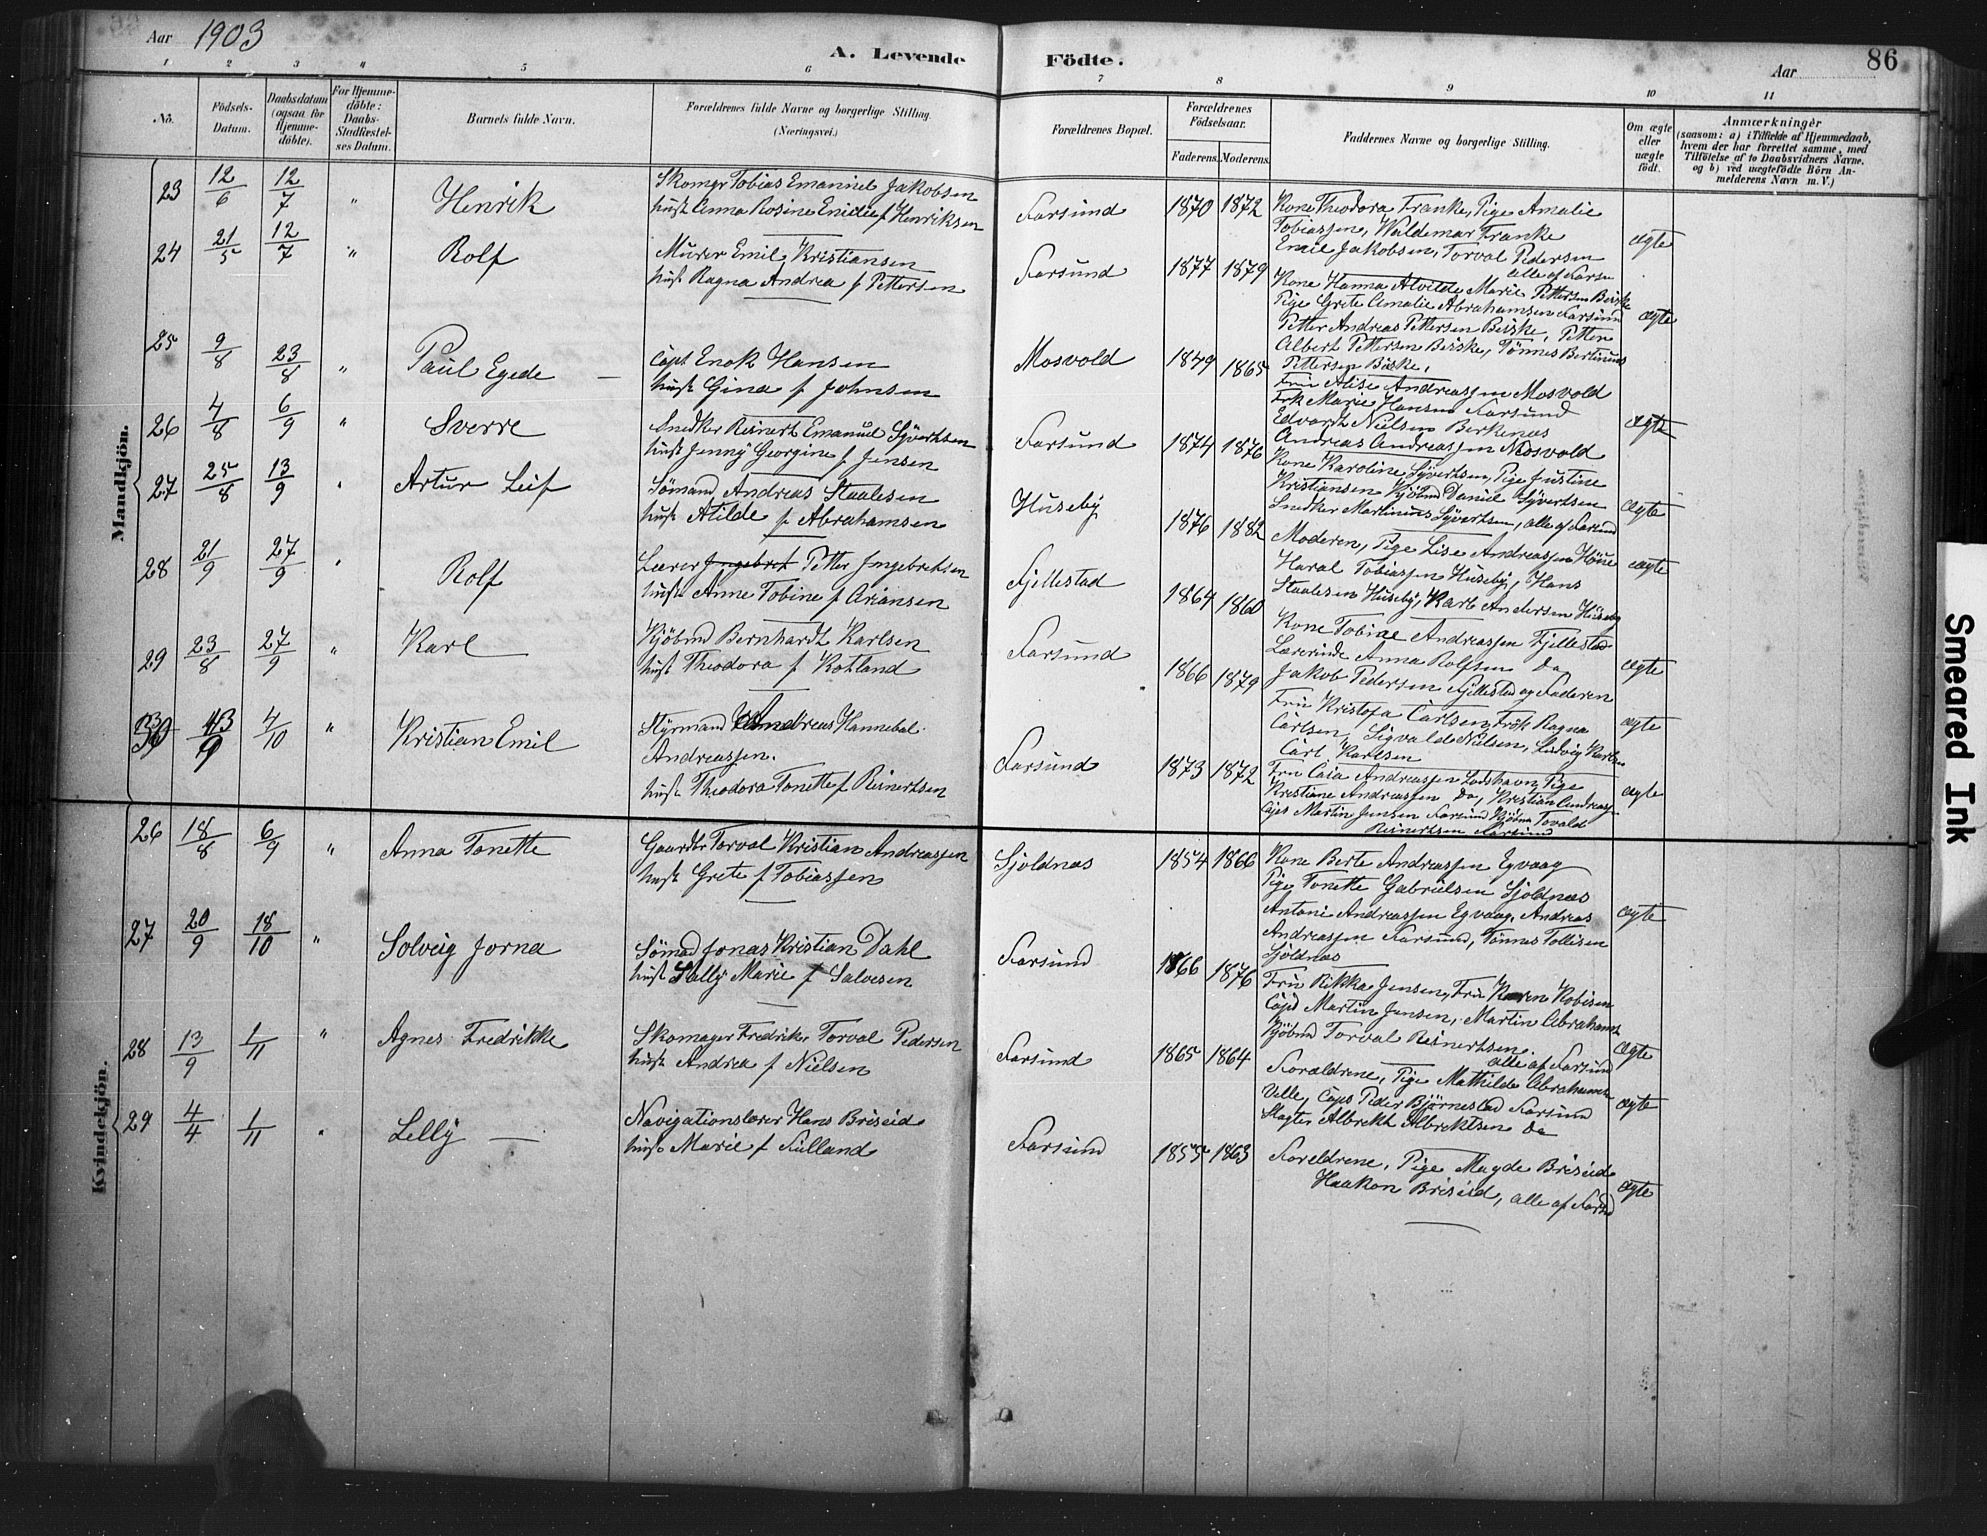 Aar 1903
A. Levende Födte.
Aar 86
1 2 3 4 5 6 7 8 9 10 11
No.
Födsels-Datum.
Daabsdatum (ogsaa for Hjemme-döbte).
For Hjemme-döbte: Daabs-Stadfæstel-ses Datum.
Barnets fulde Navn.
Forældrenes fulde Navne og borgerlige Stilling. (Næringsvei.)
Forældrenes Bopæl.
Forældrenes Födselsaar.
Faderens. Moderens.
Faddernes Navne og borgerlige Stilling.
Om ægte eller uægte födt.
Anmærkninger (saasom: a) i Tilfælde af Hjemmedaab, hvem der har forrettet samme, med Tilföielse af to Daabsvidners Navne, og b) ved uægtefödte Börn Anmelderens Navn m. V.)
Mandkjön.
23 12/6 12/7 " Henrik
Skomgr Tobias Emanuel Jakobsen
hust Anna Rosine Emilie f Henriksen
Farsund 1870 1872
Kone Theodora Franke, Pige Amalie
Tobiassen, Waldemar Franke
Emil Jakobsen, Torval Pedersen
alle af Farsu
ægte
24 21/5 12/7 " Rolf
Murer Emil Kristiansen
hust Ragna Andrea f Pettersen
Farsund 1877 1879
Kone Hanna Alvilde Marie Pettersen Biske
Pige Grete Amalie Abrahamsen Farsund
Petter Andreas Pettersen Biske, Petter
Albert Pettersen Biske, Tönnes Bertinius
Pettersen Biske,
ægte
25 9/8 23/8 " Paul Egede
Capt Enok Hansen
hust Gina f Johnsen
Mosvold 1849 1865
Fru Alise Andreassen Mosvold
Frk Marie Hansen Farsund
Edvardt Nielsen Berkenes
Andreas Andreassen Mosvold
ægte
26 4/8 6/9 " Sverre
Snedker Reinert Emanuel Syvertsen
hust Jenny Georgine f Jensen
Farsund 1874 1876
Kone Karoline Syvertsen, Pige Justine
Kristiansen Kjöbmd Daniel Syvertsen
Snedker Martinius Syvertsen, alle af Farsund
ægte
27 25/8 13/9 " Artur Leif
Sömand Andreas Staalesen
hust Atilde f Abrahamsen
Huseby 1876 1882
Moderen, Pige Lise Andreassen Höue
Haral Tobiassen Huseby, Hans
Staalesen Huseby, Karl Andersen Huseby
ægte
28 21/9 27/9 " Rolf
Lærer Ingebret Petter Ingebretsen
hust Anne Tobine f Ariansen
Fjellestad 1864 1860
Kone Tobine Andreassen Fjellestad
Lærerinde Anna Rolfsen Do
Jakob Pedersen Fjellestad og Faderen
ægte
29 23/8 27/9 " Karl
Kjöbmd Bernhardt Karlsen
hust Theodora f Kotland
Farsund 1866 1879
Fru Kristofa Carlsen, Frök Ragna
Carlsen, Sigvald Nielsen, Ludvig Karlsen
Carl Karlsen
ægte
30 13/9 4/10 " Kristian Emil
Styrmand Andreas Hannebal
Andreassen.
hust Theodora Tonette f Reinertsen
Farsund 1873 1872
Fru Caia Andreassen Lodshavn, Pige
Kristiane Andreassen Do, Kristian Andreassen
Caps Martin Jensen Farsund Kjöbm Tovald
Reinertsen Farsund
ægte
Kvindekjön.
26 18/8 6/9 " Anna Tonette
Gaardbr Torval Kristian Andreassen
hust Grete f Tobiassen
Sjoldnæs 1854 1866
Kone Berte Andreassen Egvaag
Pige Tonette Gabrielsen Sjoldnæs
Antoni Andreassen Egvaag, Andreas
Andreassen Farsund, Tönnes Tollisen
Sjoldnæs
ægte
27 20/9 18/10 " Solveig Jorna
Sömad Jonas Kristian Dahl
hust Sally Marie f Salvesen
Farsund 1866 1876
Fru Rikka Jensen, Fru Karen Robisen
Capt Martin Jensen, Martin Abrahams
Kjöbmd Torval Reinertsen.
alle af Farsund
ægte
28 13/9 1/11 " Agnes Fredrikke
Skomager Fredrik Torval Pedersen
hust Andrea f Nielsen
Farsund 1865 1864
Forældrene, Pige Mathilde Abrahams
Velle, Caps Peder Bjørnestad Farsund
Slagter Albrekt Albrektsen Do
ægte
29 4/4 1/11 " Lelly
Navigationslærer Hans Briseid
hust Marie f Fulland
Farsund 1855 1863
Foreldrene, Pige Magda Briseid
Haakon Briseid, alle af Farsnd
ægte
Smeared Ink